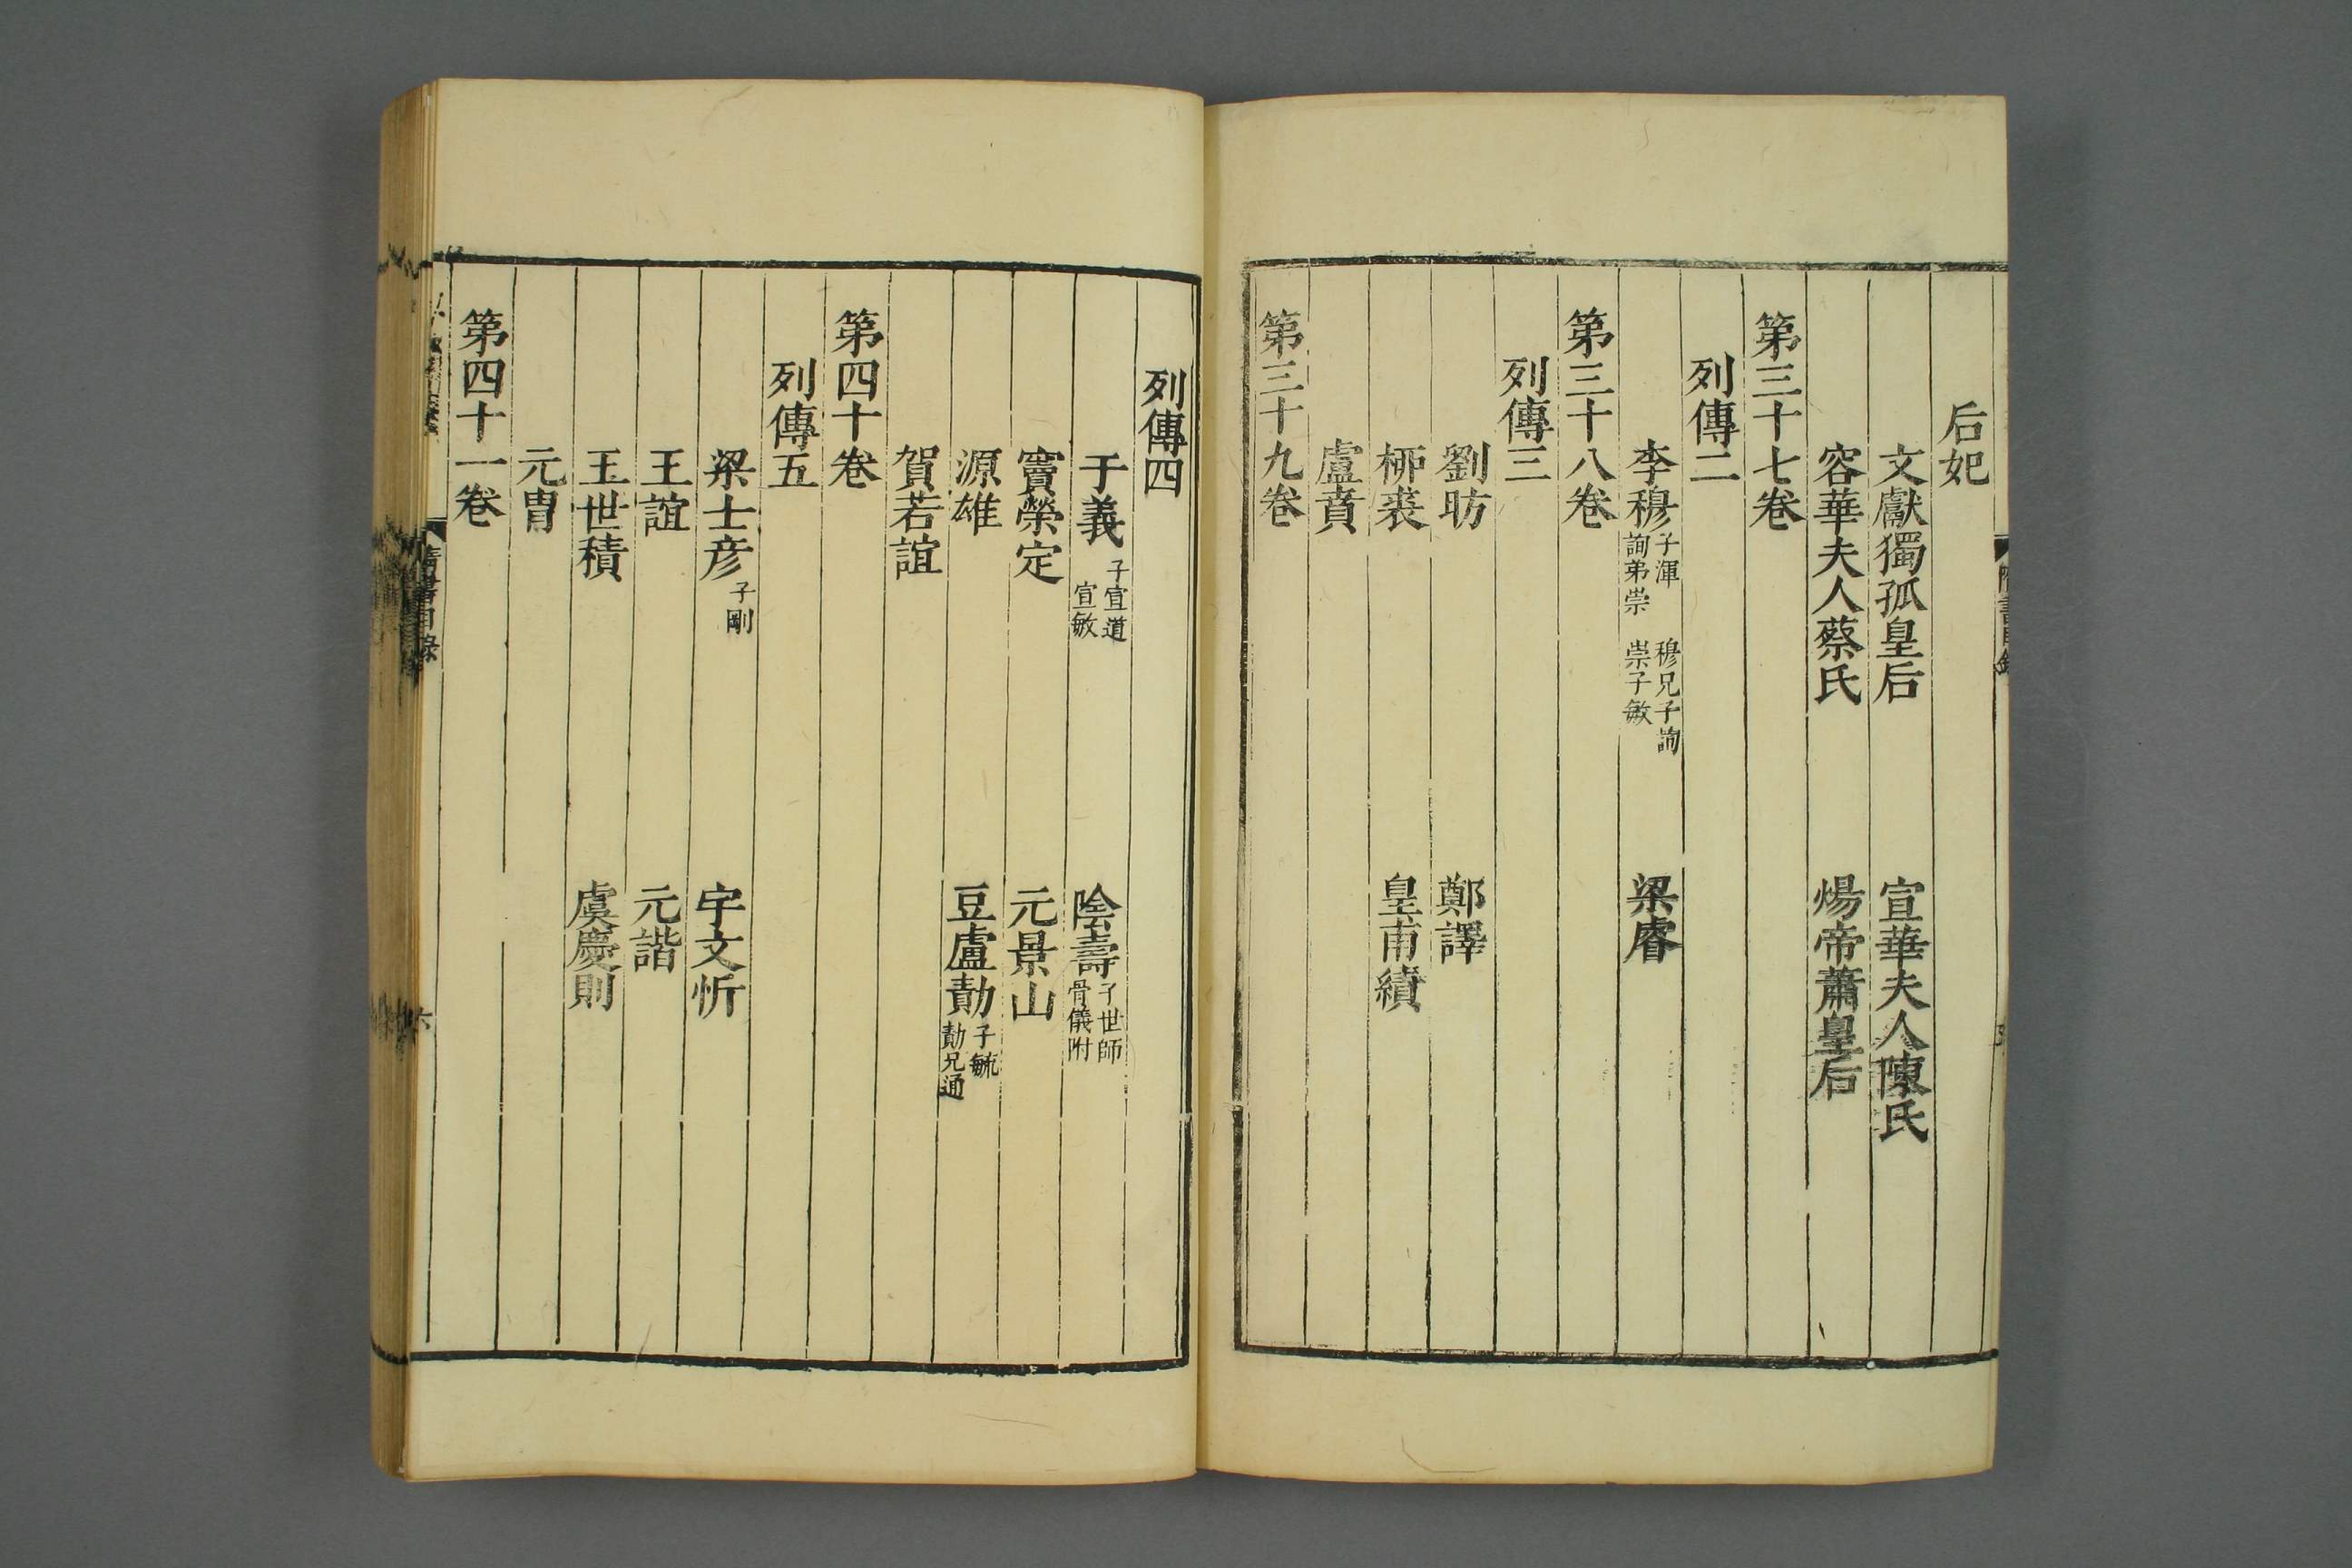 后妃
文獻獨孤皇后　宣華夫人陳氏
容華夫人蔡氏　煬帝蕭皇后
第三十七卷
列傳二
李穆 子渾　穆兄子詢 詢弟崇　崇子敏　梁睿
第三十八卷
列傳三
劉昉　鄭譯
栁裘　皇甫績
盧賁
第三十九卷
列傳四
于義 子宣道 宣敏　陰壽 子世師 骨儀附
竇榮定　元景山
源雄　豆盧勣 子毓 勣兄通
賀若誼
第四十卷
列傳五
梁士彥 子剛　宇文忻
王誼　元諧
王世積　虞慶則
元胄
第四十一卷
隋書目錄
六